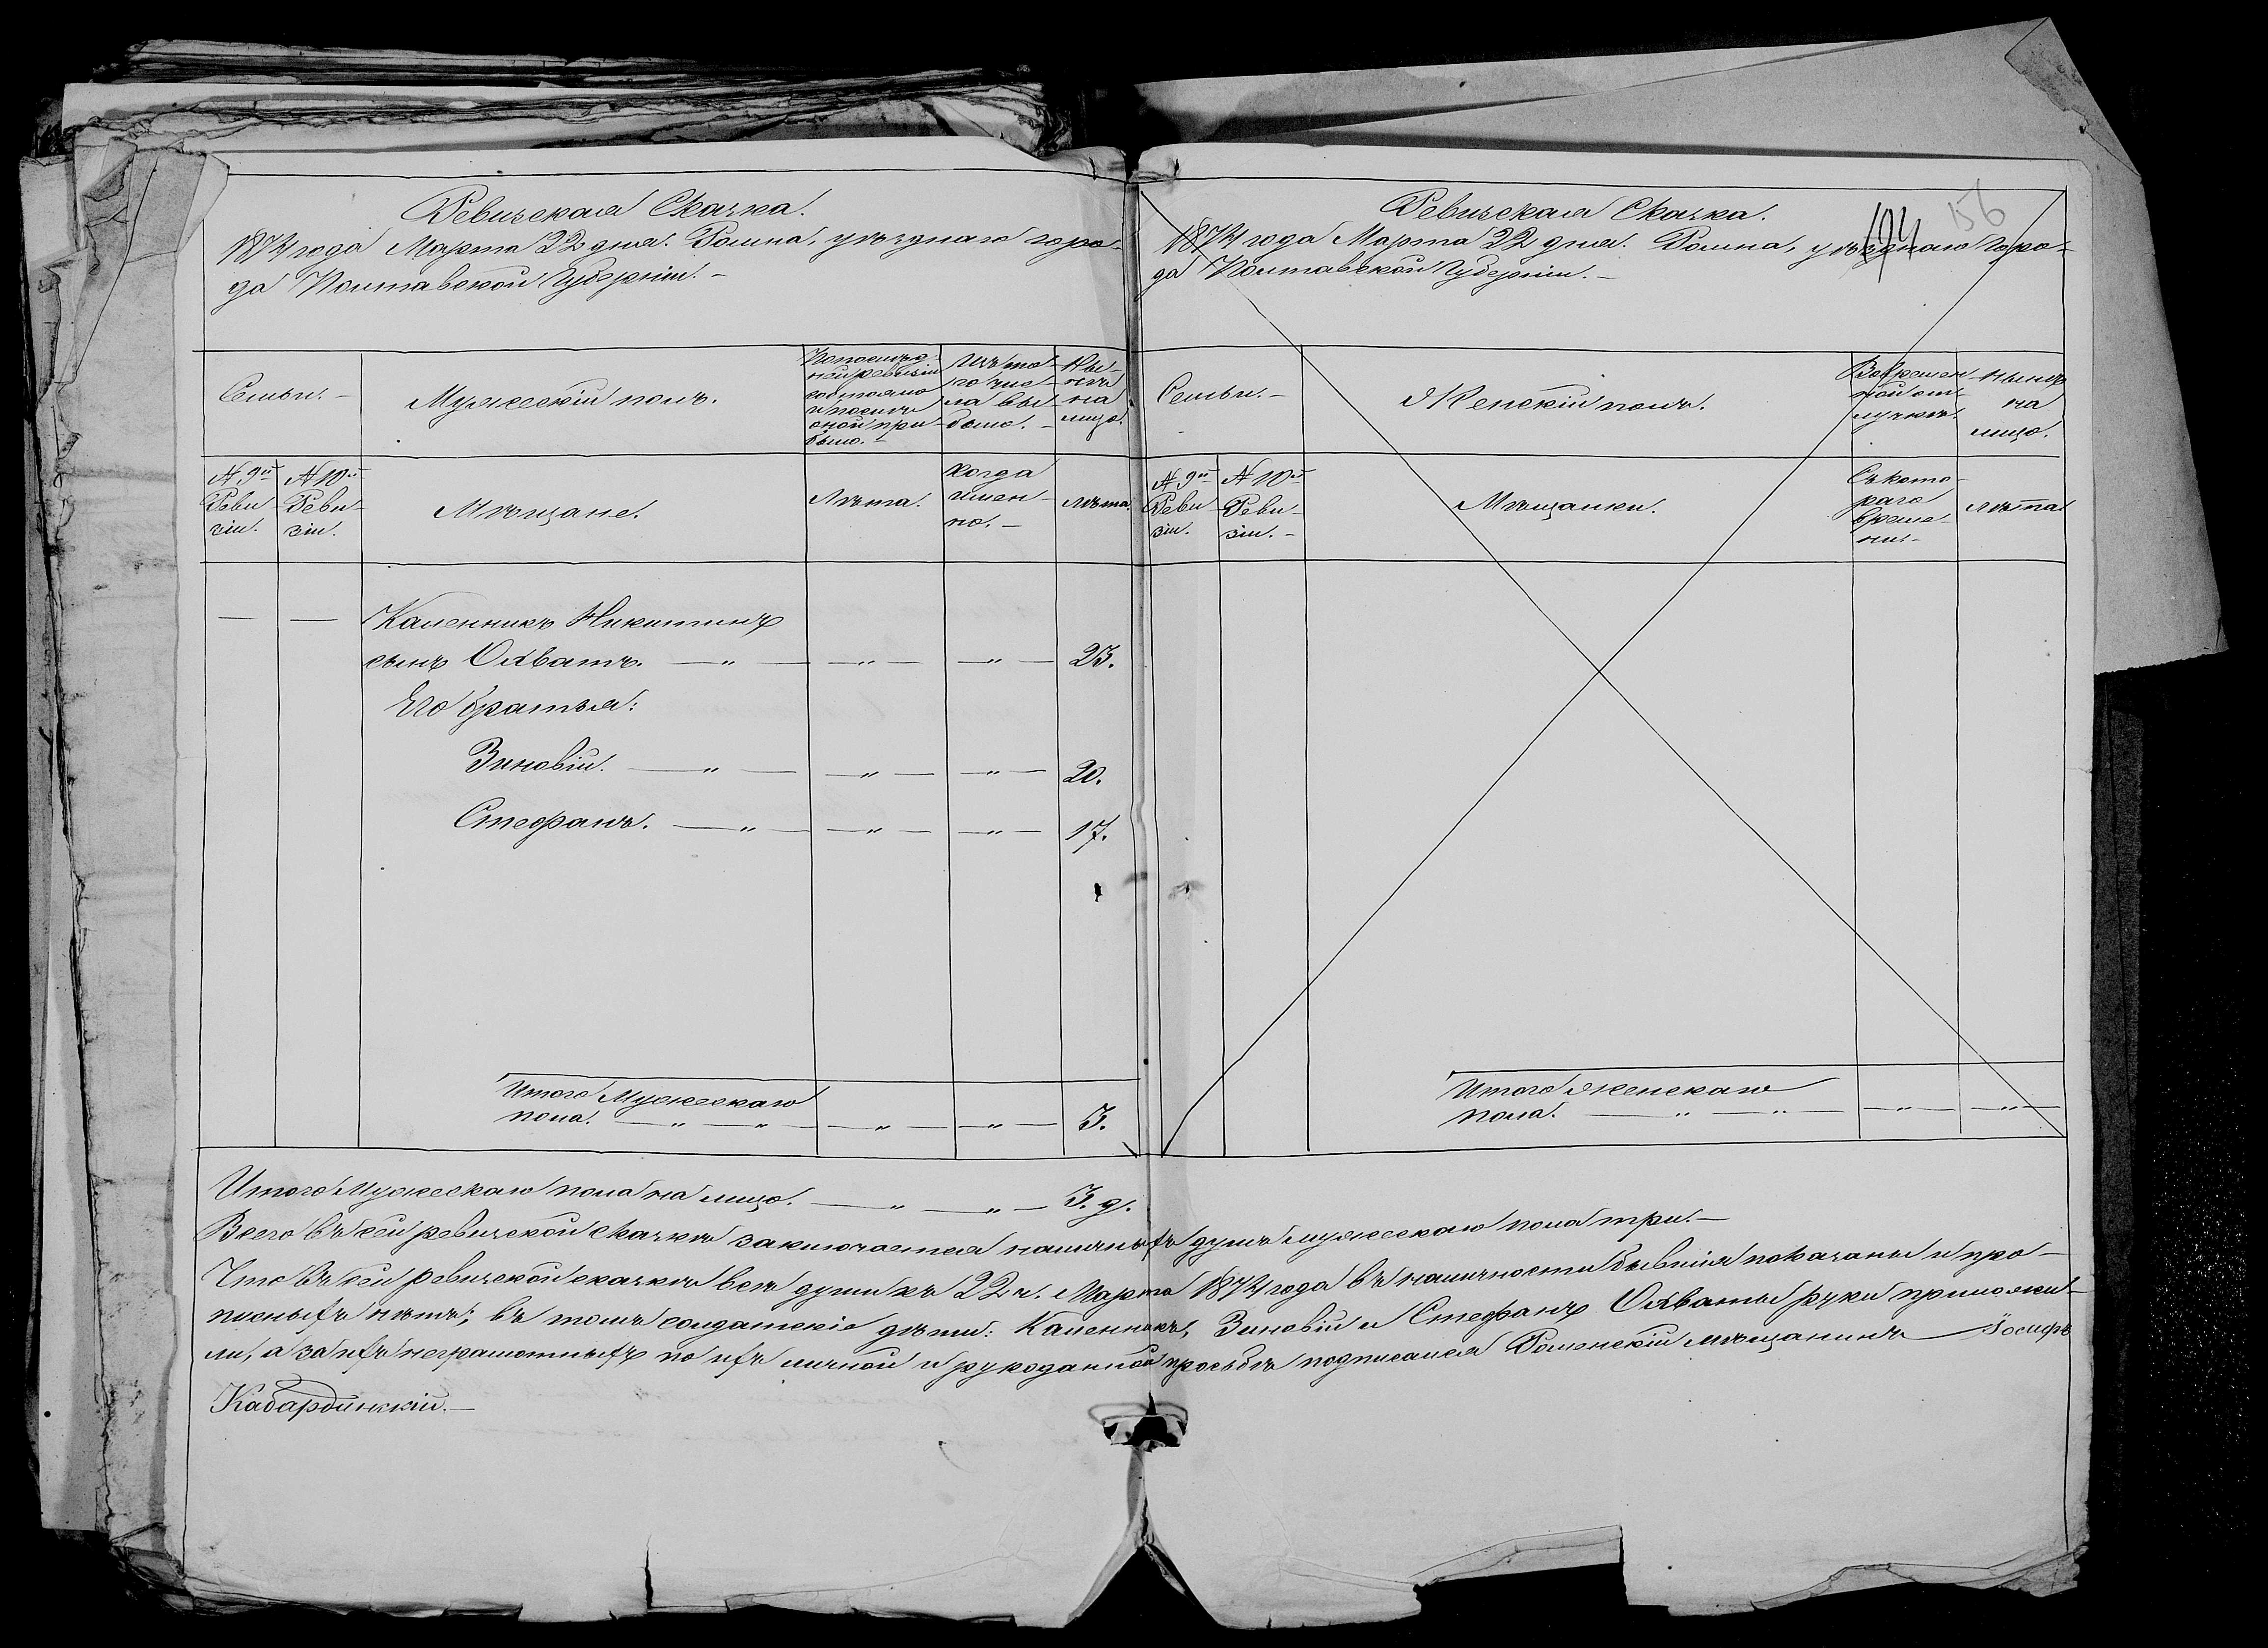 Ревизская Сказка.
1874 года Марта 22 дня. Ромна, уѣзднаго горо-
да Полтавской Губерніи. -
Семьи. -
Мужескій полъ.
По послѣд-
ней ревизіи
состояло
и послѣ
оной при-
было. -
Изъ то-
го чис-
ла вы-
было. -
Ны-
нѣ
на
лицо.
№ 9й
Реви-
зіи.
№ 10й
Реви-
зіи.
Мѣщане.
Лѣта.
Когда
имен-
но. -
Лѣта.
— — Каленникъ Никитинъ
сынъ Оявать. — „ — — „ — — „ — 23.
Его братья:
Зиновій. — „ — — „ — — „ — 20.
Стефанъ. — „ — — „ — — „ — 17.
Итого Мужескаго
пола. — „ — „ — — „ — — „ — 3.
Ревизская Сказка.
194 56
1874 года Марта 22 дня. Ромна, уѣзднаго горо-
да Полтавской Губерніи. -
Семьи. -
Женскій полъ.
Во времен-
ной от-
лучкѣ.
Нынѣ
на
лицо.
№ 9й
Реви-
зіи.
№ 10й
Реви-
зіи. -
Мѣщанки.
Съ кото-
раго
време-
ни. -
Лѣта.
Итого женскаго
пола. — „ — „ — — „ — — „ —
Итого Мужескаго пола на лицо. — „ — „ — 3. д.
Всего въ сей ревизской сказкѣ заключается наличныхъ душъ мужескаго пола три. —
Что въ сей ревизской сказкѣ всѣ души къ 22 ч. Марта 1874 года въ наличности бывшія показаны и про-
писныхъ нѣтъ; въ томъ солдатскіе дѣти: Каленникъ, Зиновій и Стефанъ Ояваты руки приложи-
ли, а за ихъ неграмотныхъ по ихъ личной и рукоданной просьбѣ подписался Роменскій мѣщанинъ Іосифъ
Кабардинскій. —